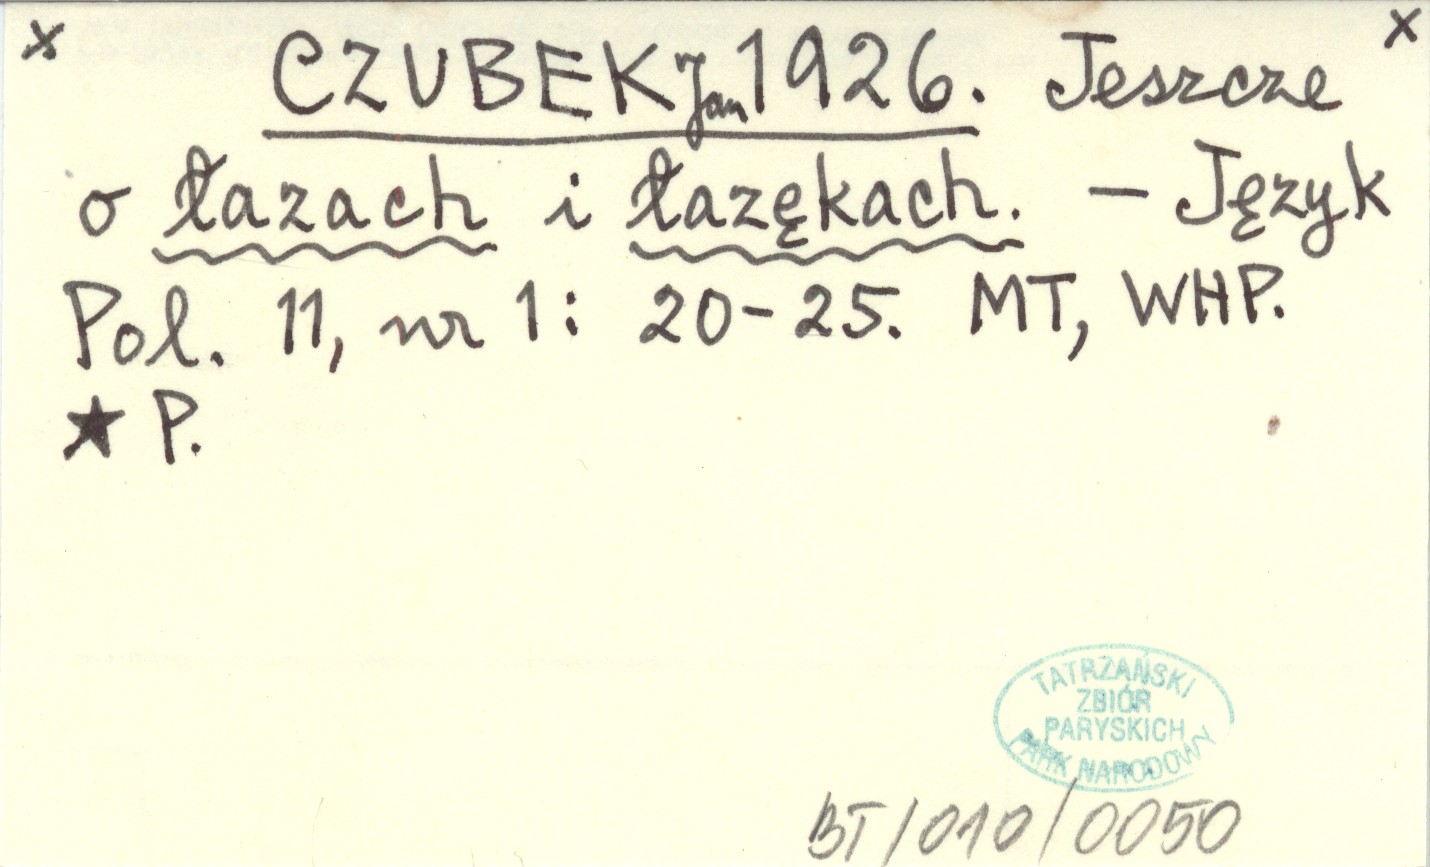 x x
CZUBEK Jan 1926. Jeszcze
o łazach i łazękach. — Język
Pol. 11, nr 1: 20-25. MT, WHP.
★ P.
TATRZAŃSKI
ZBIÓR
PARYSKICH
PARK NARODOWY
BT/010/0050